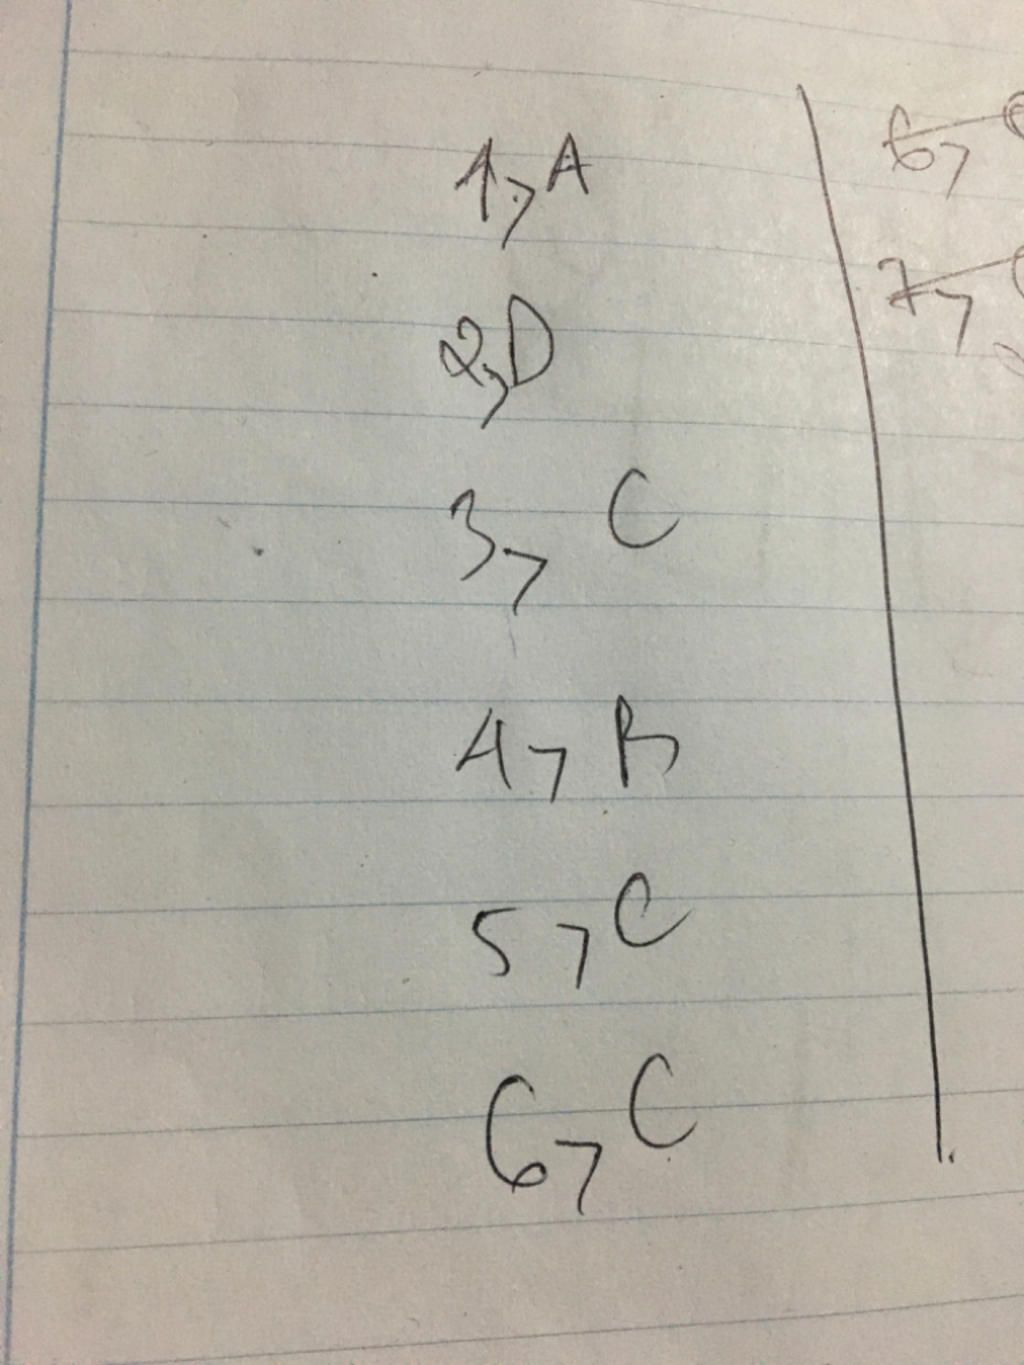 1, A
2, D
3, C
4, B
5, C
6, C
6,
7,